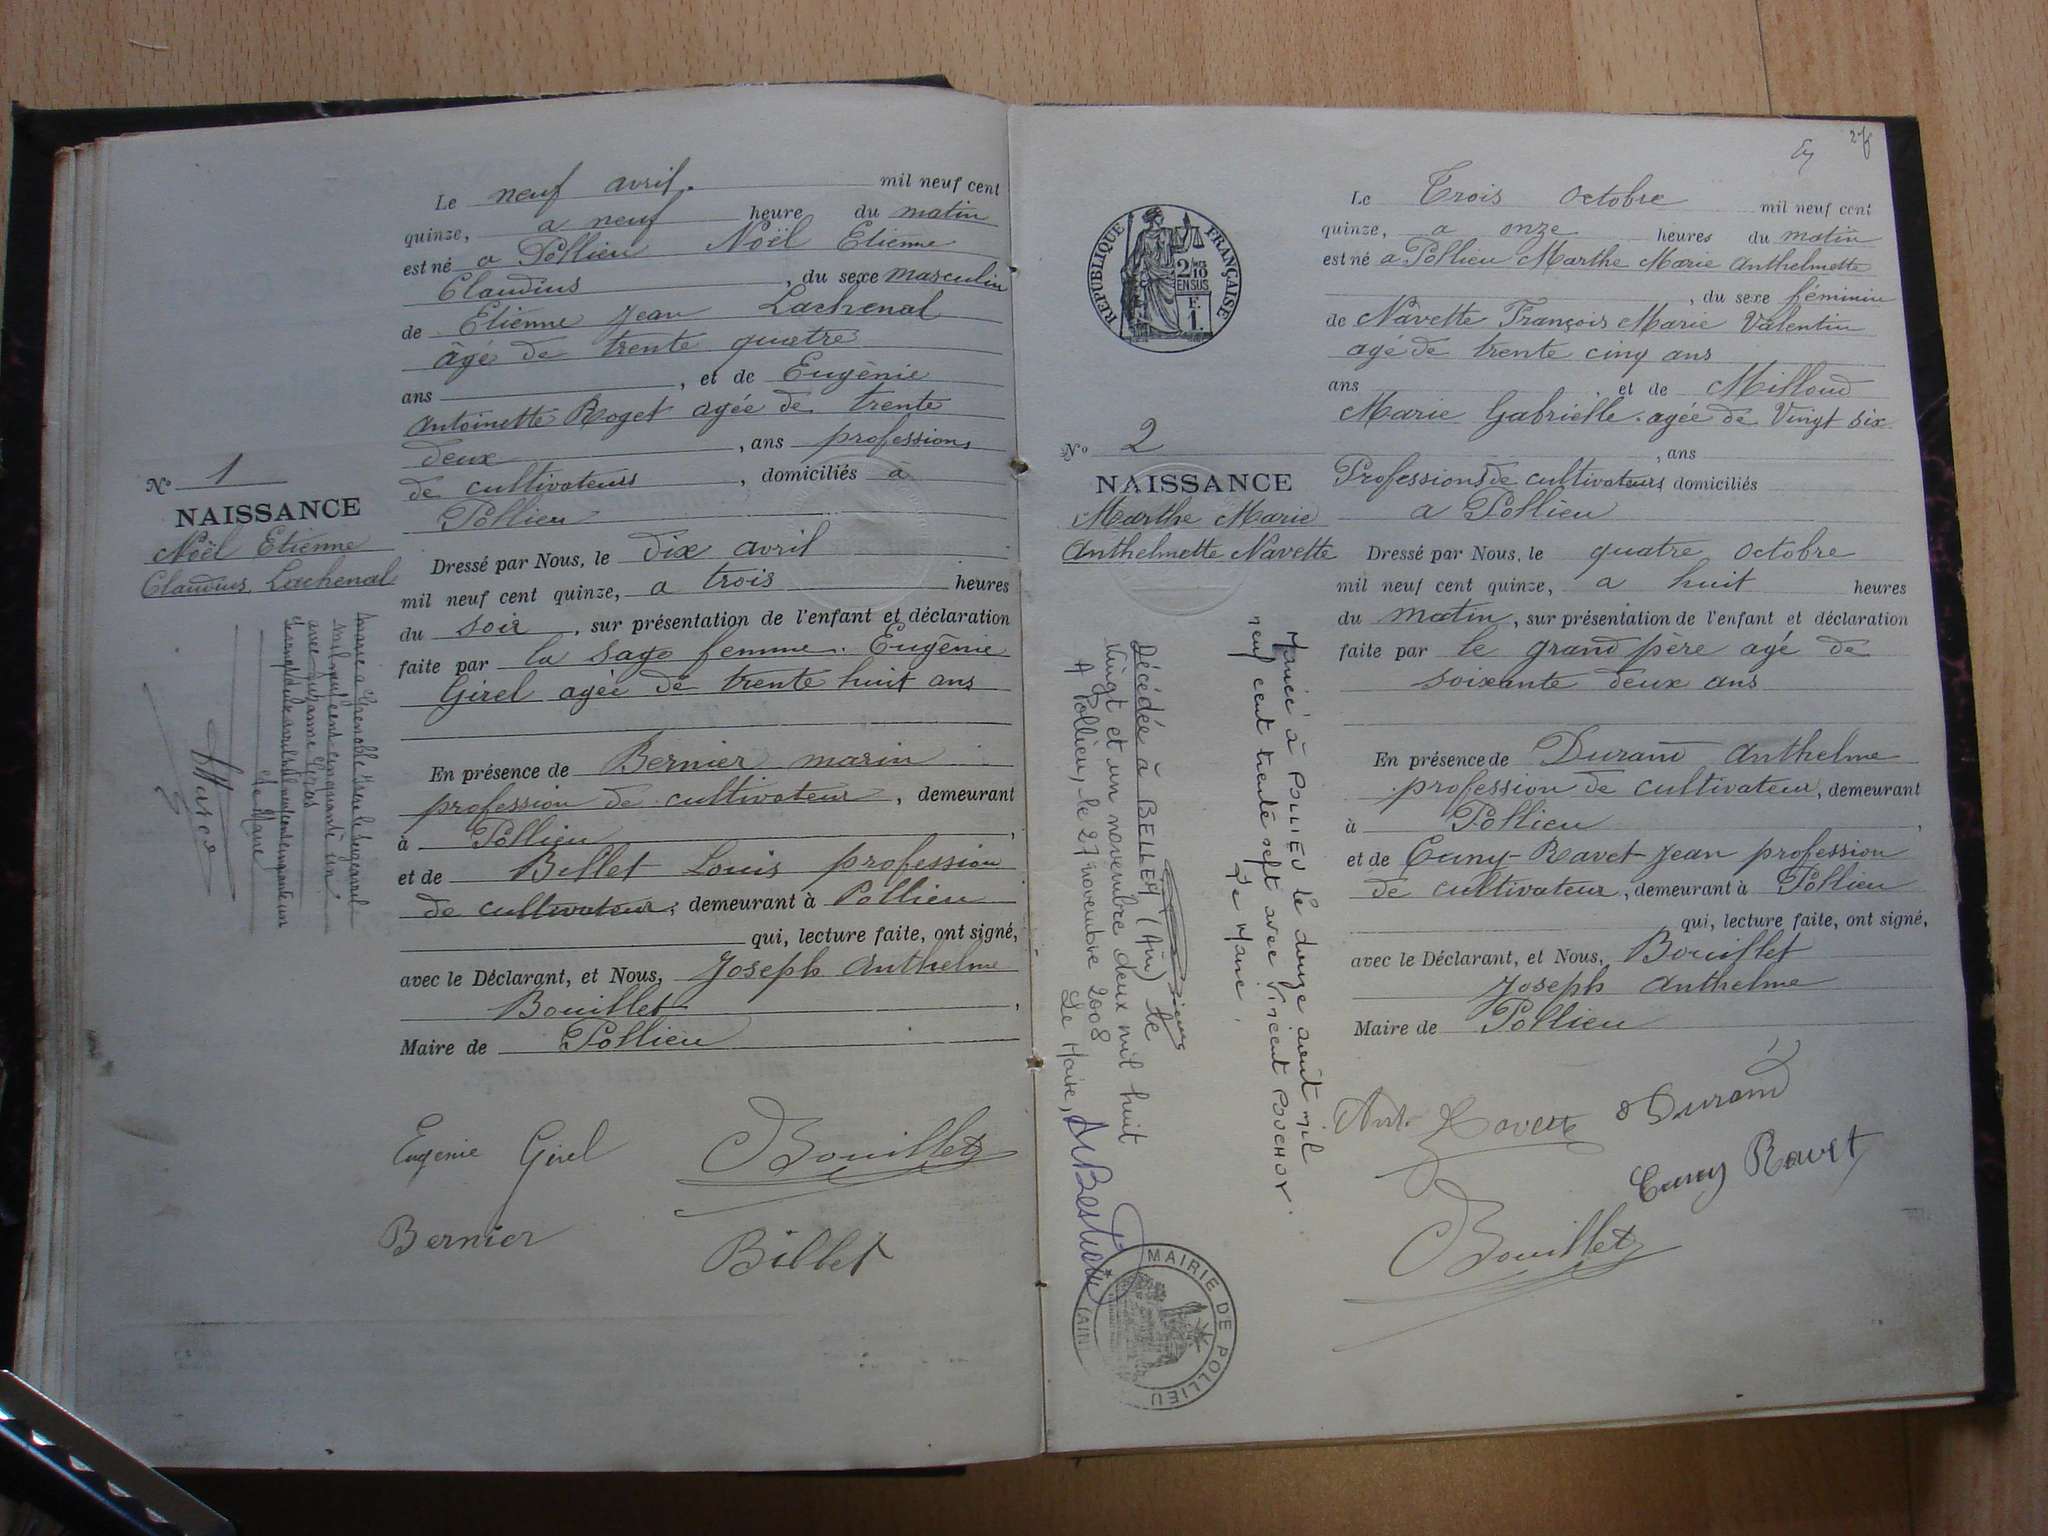 Le neuf avril. mil neuf cent
quinze, a neuf heure du matin
est né a Pollieu Noël Etienne
Claudius, du sexe masculin
de Etienne Jean Lachenal
âgé de trente quatre
ans, et de Eugènie
Antoinette Roget agée de trente
deux, ans professions
de cultivateurs, domiciliés à
Pollieu
No 1
NAISSANCE
Noël Etienne
Claudius Lachenal
Dressé par Nous, le dix avril
mil neuf cent quinze, a trois heures
du soir, sur présentation de l'enfant et déclaration
faite par la sage femme. Eugènie
Girel agée de trente huit ans
En présence de Bernier marin
profession de cultivateur, demeurant
à Pollieu,
et de Billet Louis profession
de cultivateur, demeurant à Pollieu
qui, lecture faite, ont signé,
avec le Déclarant, et Nous, Joseph Anthelme
Bouillet,
Maire de Pollieu
Marié à Grenoble Isère le
mil neuf cent cinquante un
avec Suzanne
Le Maire
Eugénie Girel
Bouillet
Bernier
Billet
27
RÉPUBLIQUE FRANÇAISE
2/10
EN SUS
F.
1.
Le Trois Octobre mil neuf cent
quinze, a onze heures du matin
est né a Pollieu Marthe Marie Anthelmette
, du sexe féminin
de Navette François Marie Valentin
agé de trente cinq ans
ans, et de Milloud
Marie Gabrielle. agée de Vingt six
, ans
Professions de cultivateurs domiciliés
a Pollieu
No 2
NAISSANCE
Marthe Marie
Anthelmette Navette
Dressé par Nous, le quatre Octobre
mil neuf cent quinze, a huit heures
du matin, sur présentation de l'enfant et déclaration
faite par le grand père agé de
soixante deux ans
En présence de Durand Anthelme
profession de cultivateur, demeurant
à Pollieu,
et de Cuny-Ravet Jean profession
de cultivateur, demeurant à Pollieu
qui, lecture faite, ont signé,
avec le Déclarant, et Nous, Bouillet
Joseph Anthelme
Maire de Pollieu
Mariée à POLLIEU le douze août mil
neuf cent trente sept avec Vincent POUCHOY.
Le Maire.
Décédée à BELLEY (Ain) le
Vingt et un novembre deux mil huit
A Pollieu, le 27 novembre 2008
Le Maire,
Ant. Navette
Durand
Cuny Ravet
Bouillet
MAIRIE DE POLLIEU
(AIN)